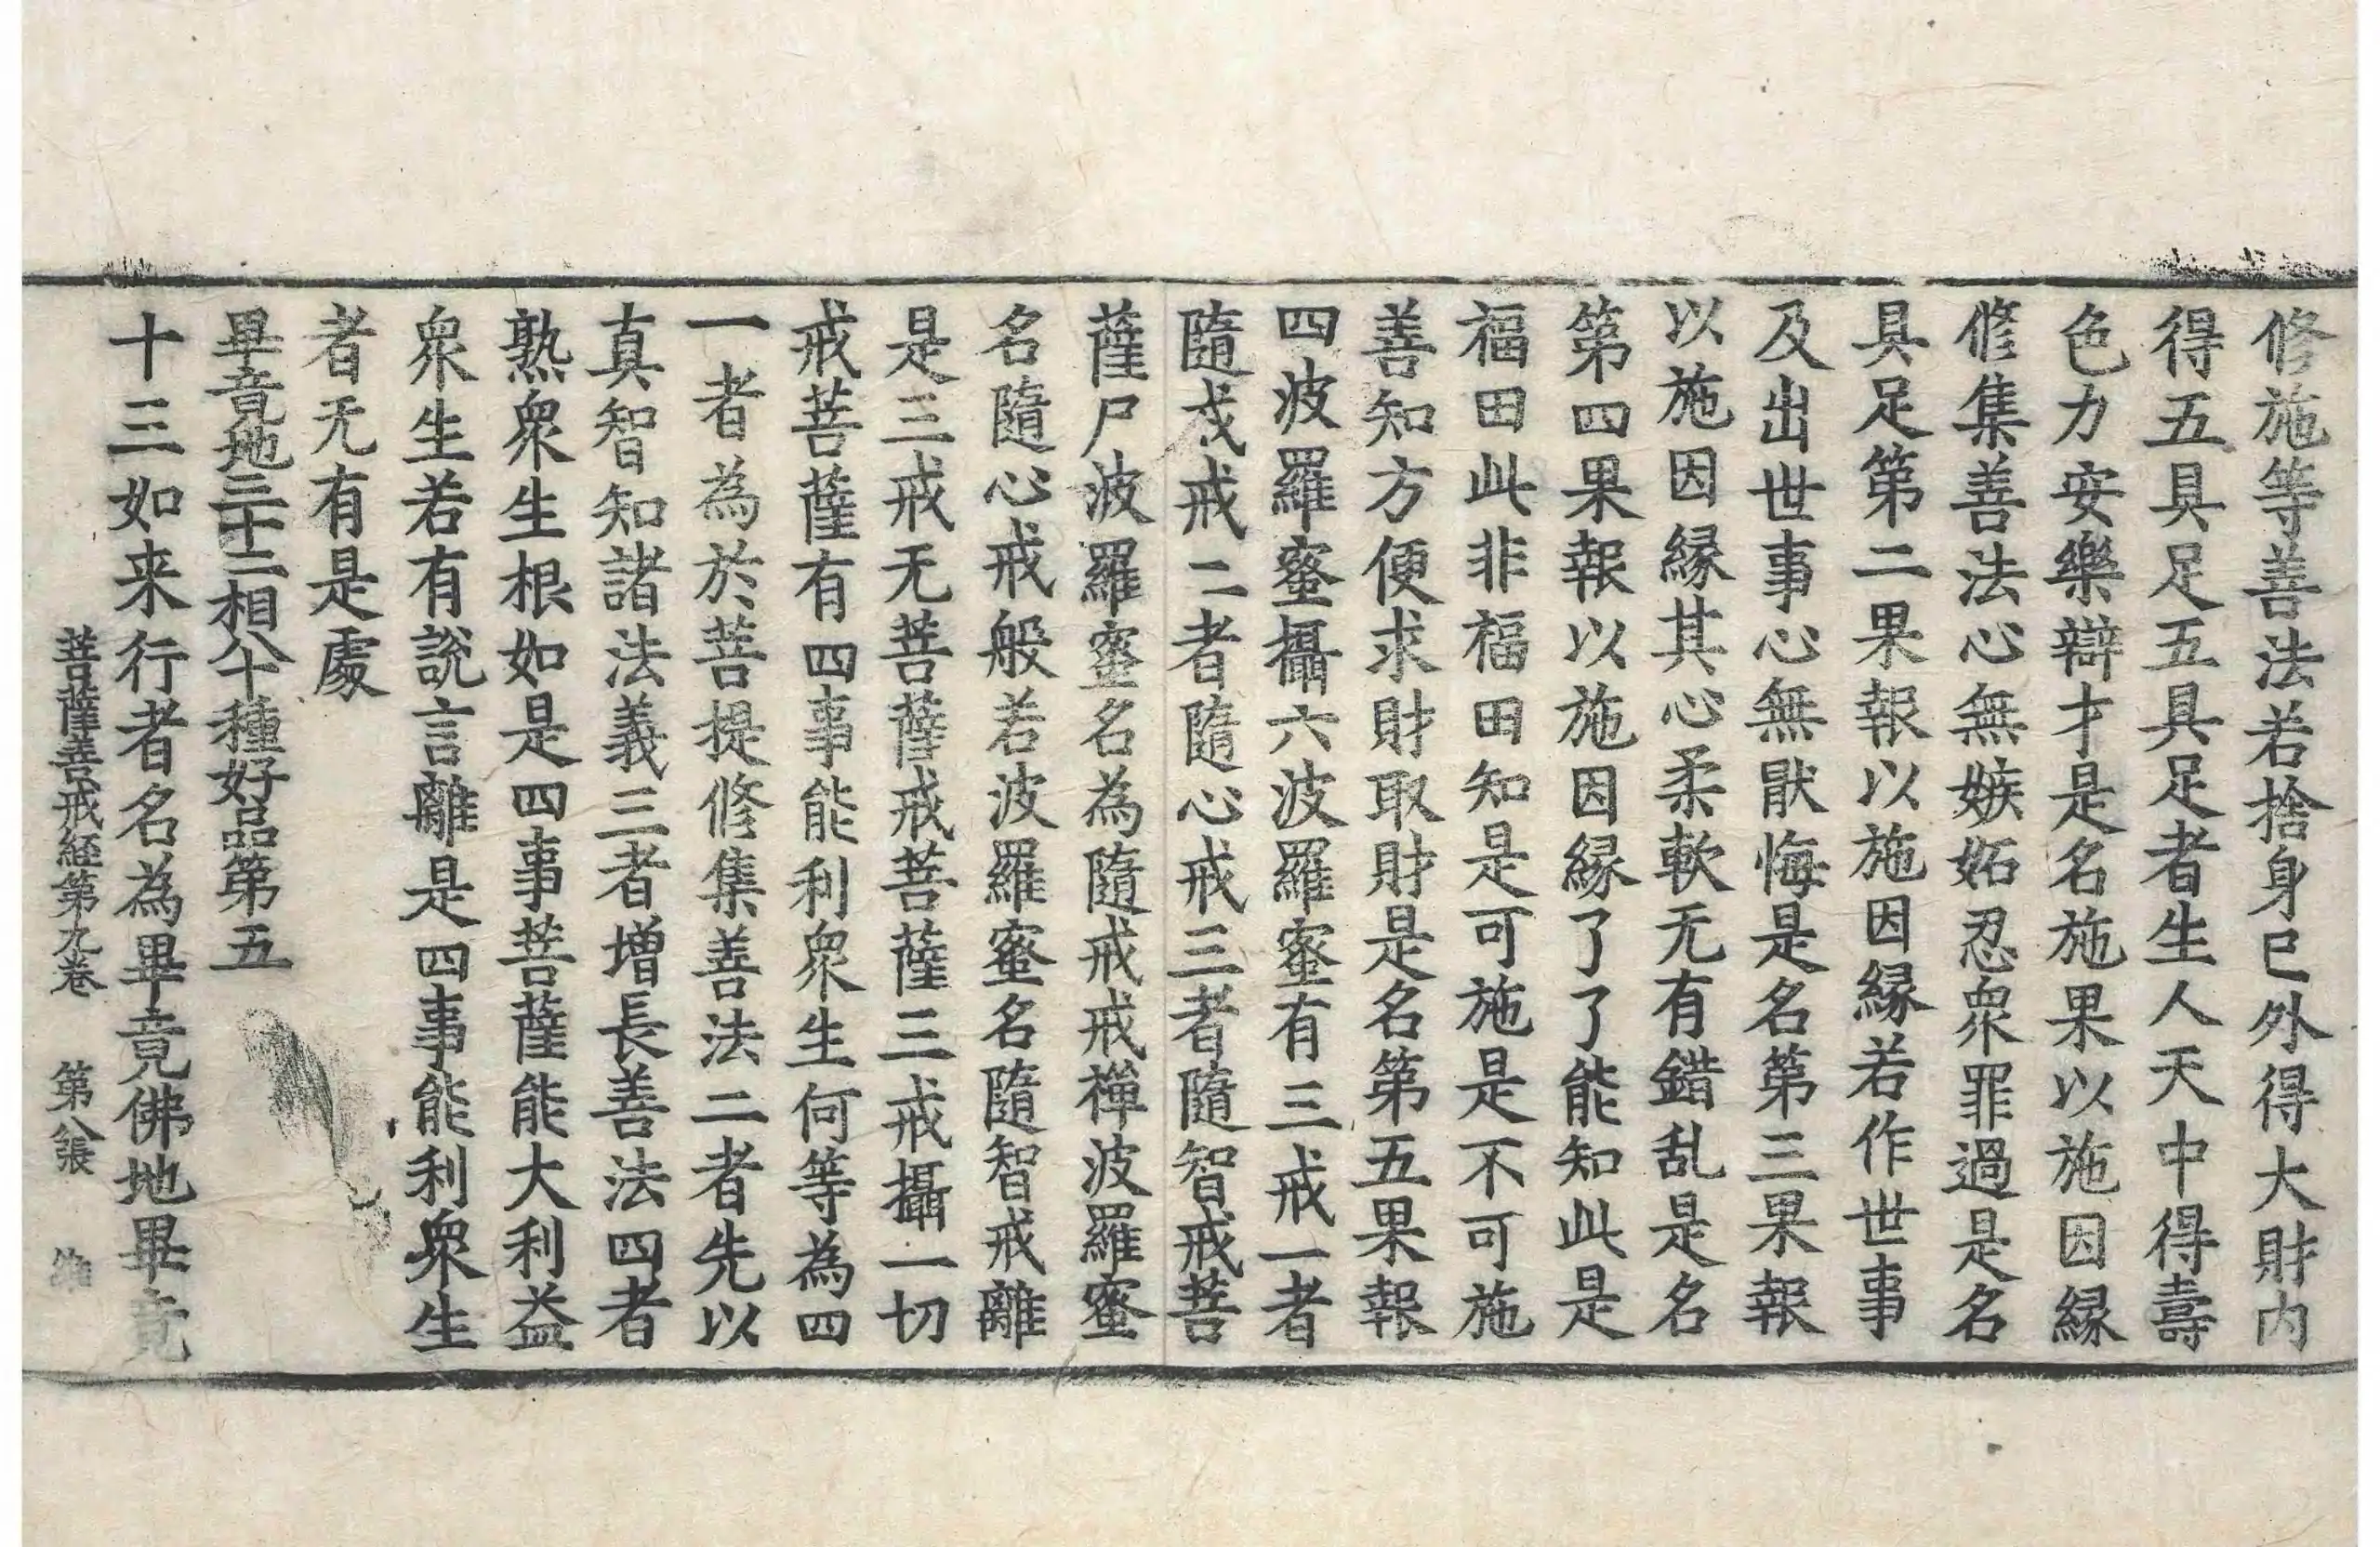 修施等善法若捨身已外得大財内
得五具足五具足者生人天中得壽
色力安樂辯才是名施果以施因縁
修集善法心無嫉妬忍衆罪過是名
具足第二果報以施因縁若作世事
及出世事心無猒悔是名第三果報
以施因縁其心柔軟无有錯乱是名
第四果報以施因縁了了能知此是
福田此非福田知是可施是不可施
善知方便求財取財是名第五果報
四波羅蜜攝六波羅蜜有三戒一者
隨戒戒二者隨心戒三者隨智戒菩
薩尸波羅蜜名為隨戒戒禪波羅蜜
名隨心戒般若波羅蜜名隨智戒離
是三戒无菩薩戒菩薩三戒攝一切
戒菩薩有四事能利衆生何等為四
一者為於菩提修集善法二者先以
真智知諸法義三者增長善法四者
熟衆生根如是四事菩薩能大利益
衆生若有說言離是四事能利衆生
者无有是處
畢竟地三十二相八十種好品第五
十三如来行者名為畢竟佛地畢竟
菩薩善戒経第九巻 第八張